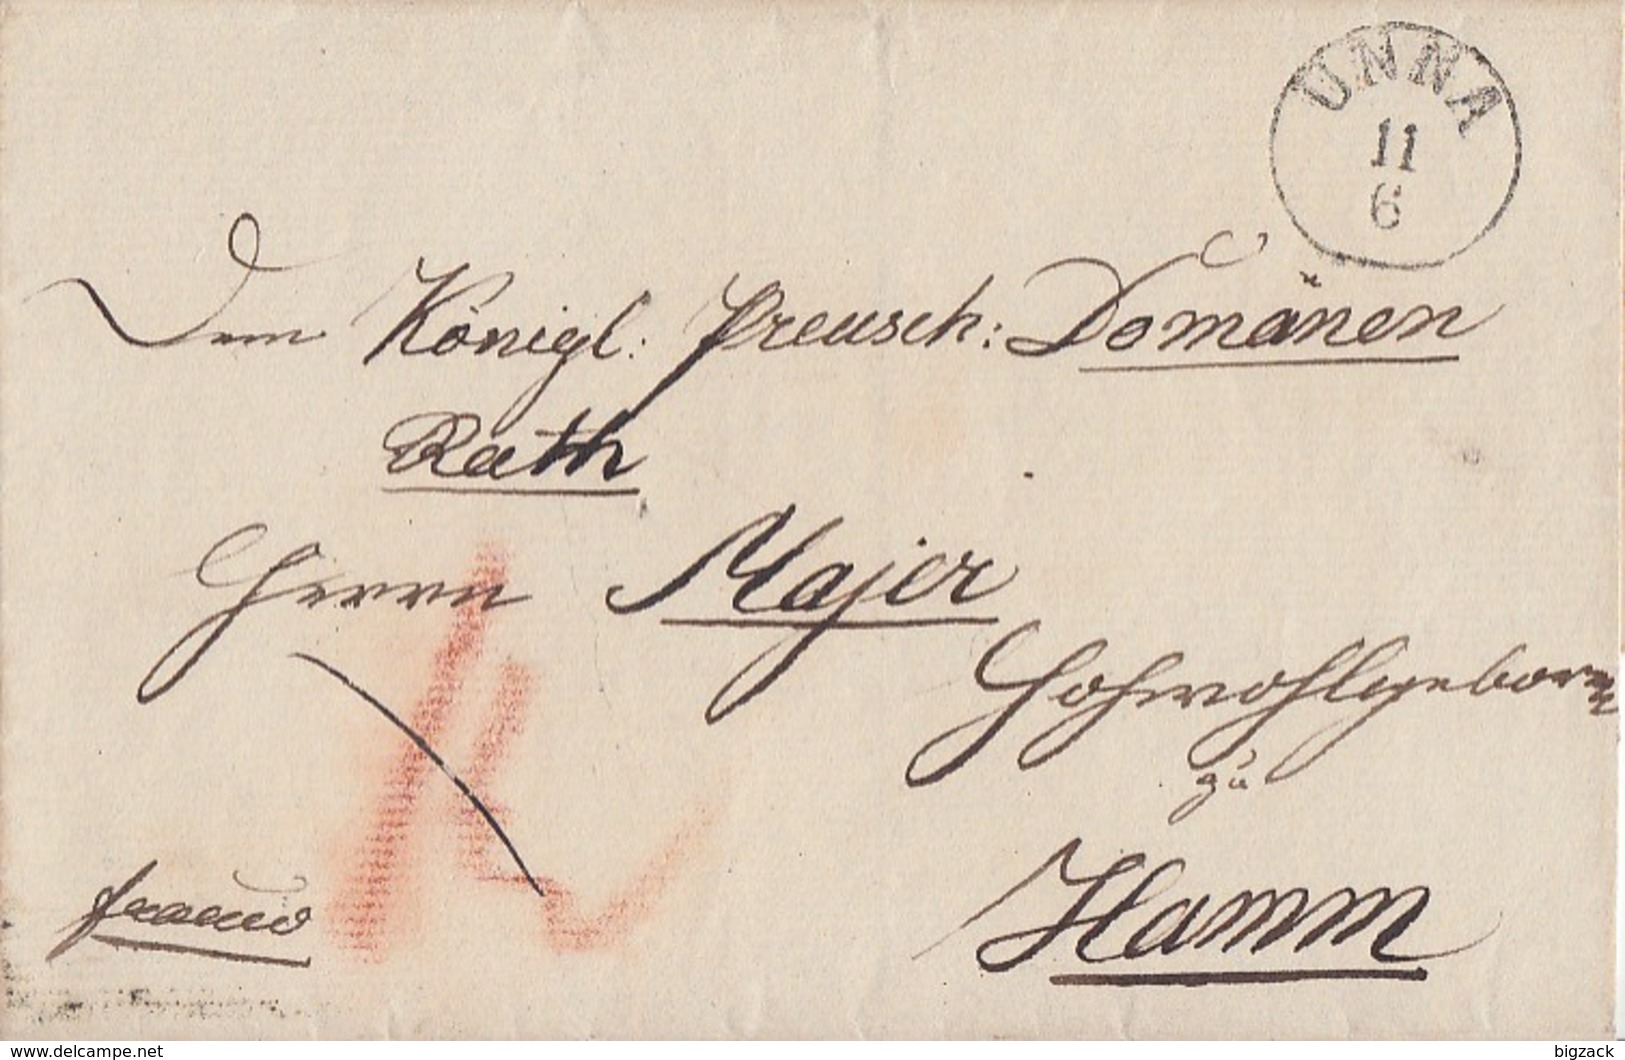 UNNA
11
6
Dem Königl: Preusch: Domänen
Rath
Herrn Majer
Hohwohlgeboren
zu
Hamm
franco
www.delcampe.net
bigzack